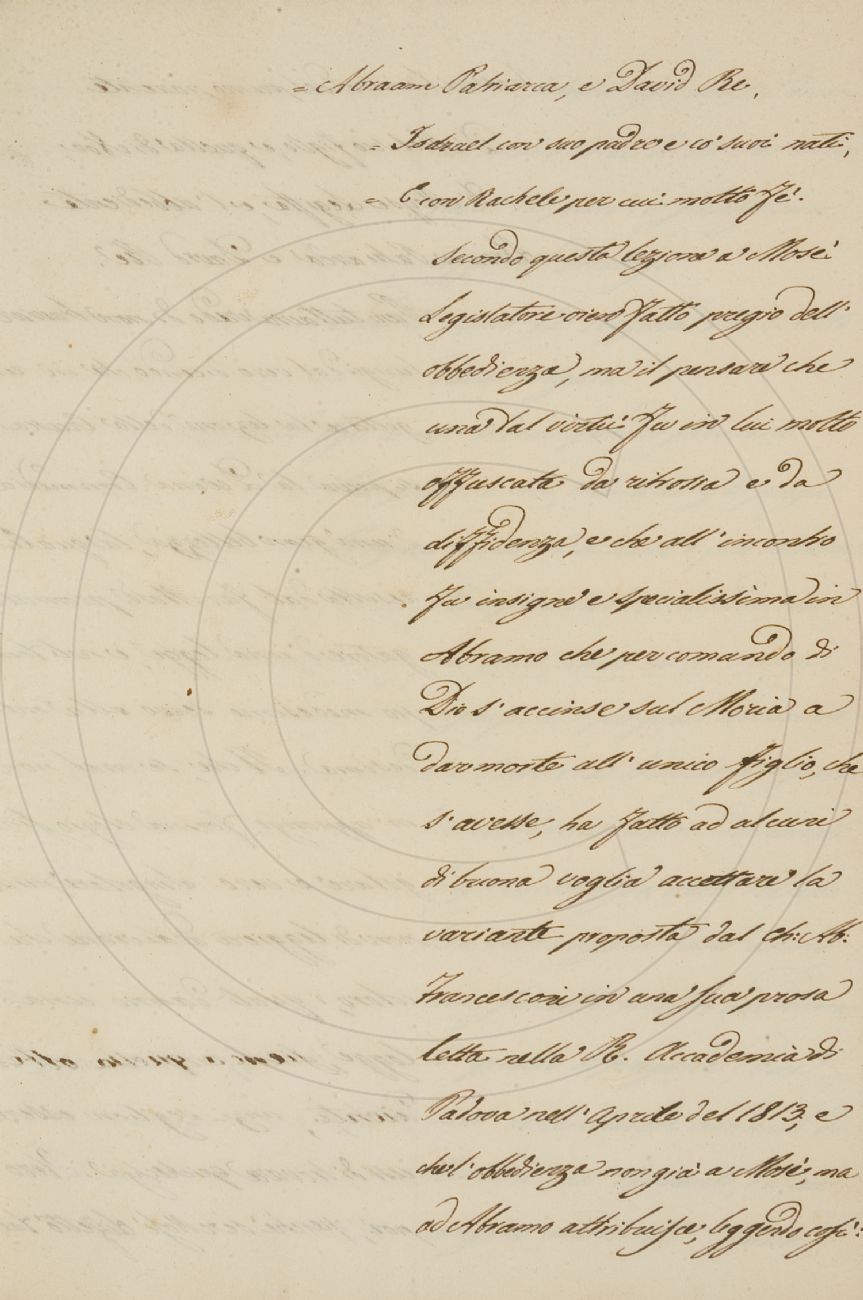 = Abraam Patriarca, e David Re,
= Isdrael con suo padre e co' suoi nati,
= E con Rachele per cui molto fé.
Secondo questa lezione a Mosé
Legislatore viene fatto pregio dell'
obbedienza, ma il pensare che
una tal virtù fu in lui molto
offuscata da ritrosia e da
diffidenza, e che all'incontro
fu insigne e specialissima in
Abramo che per comando di
Dio s'accinse sul Moria a
dar morte all'unico figlio, che
s'avesse, ha fatto ad alcuni
di buona voglia accettare la
variante proposta dal ch: Ab:
Francesconi in una sua prosa
letta nella R. Accademia di
Padova nell'Aprile del 1813, e
che l'obbedienza non già a Mosé, ma
ad Abramo attribuisce, leggendo così: